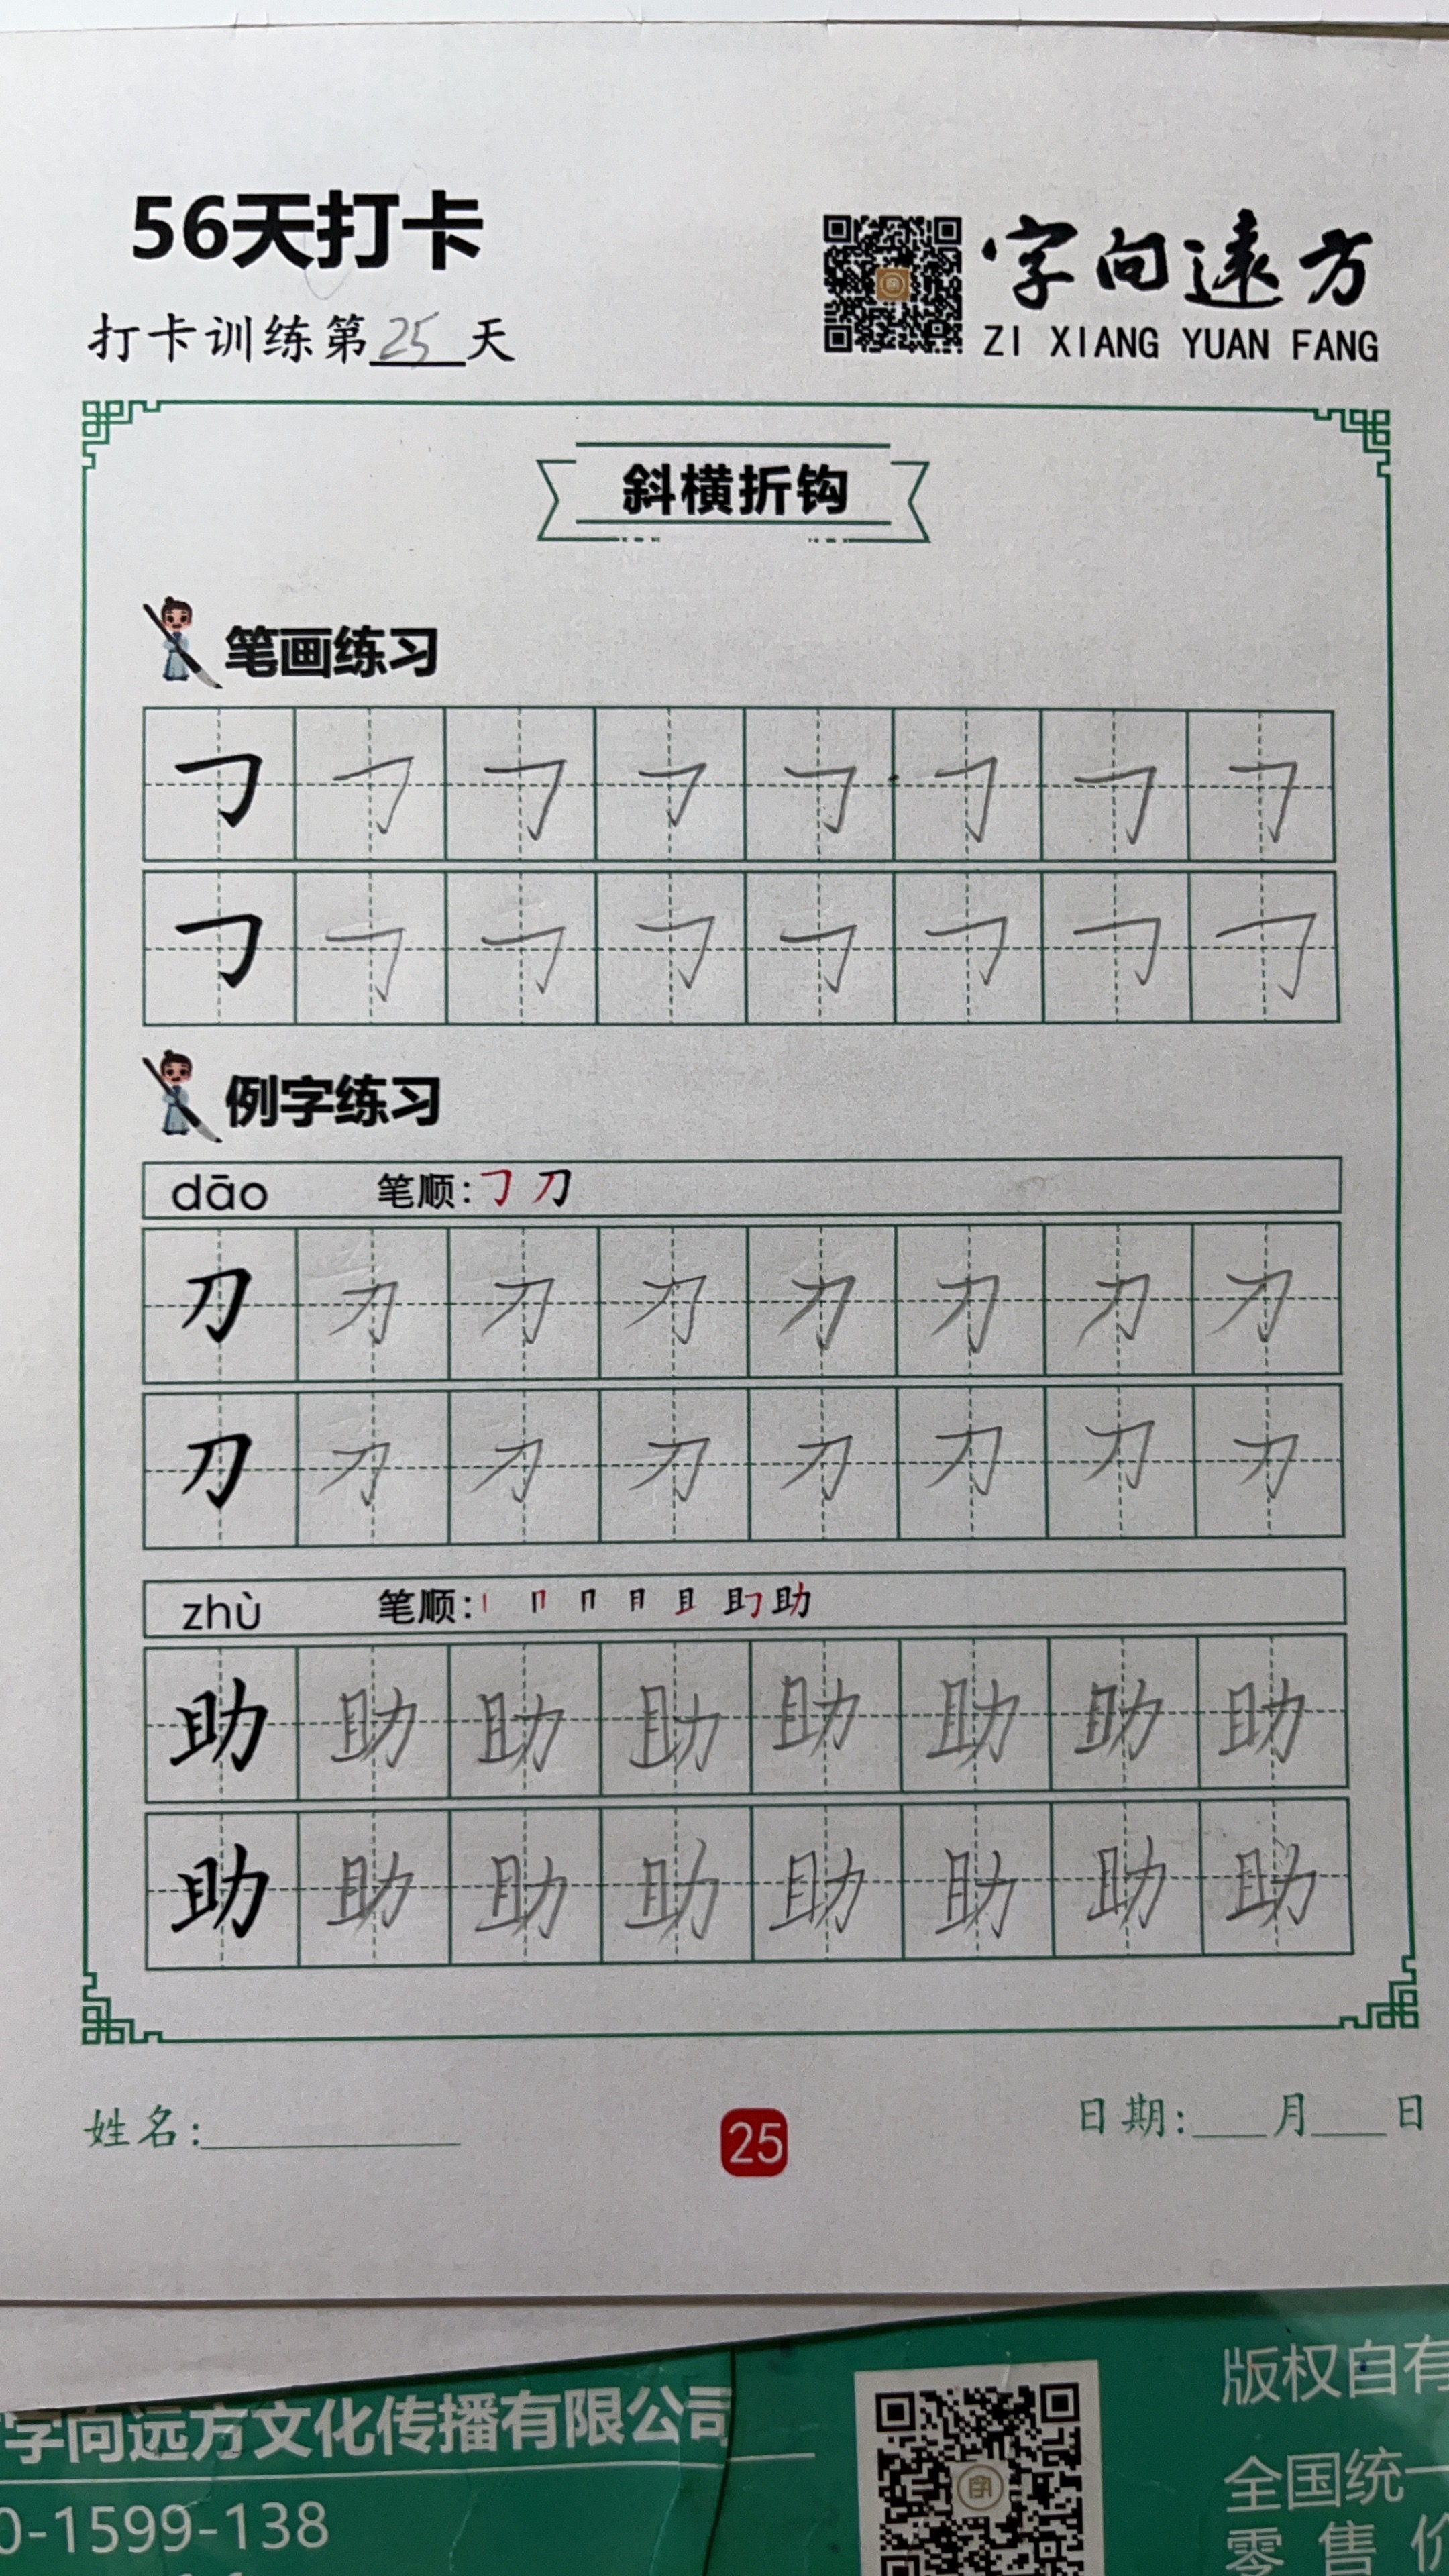 56天打卡
字向遠方
ZI XIANG YUAN FANG
打卡训练第25天
斜横折钩
笔画练习
㇆ ㇆ ㇆ ㇆ ㇆ ㇆ ㇆ ㇆
㇆ ㇆ ㇆ ㇆ ㇆ ㇆ ㇆ ㇆
例字练习
dāo 笔顺:㇆ 刀
刀 刀 刀 刀 刀 刀 刀 刀
刀 刀 刀 刀 刀 刀 刀 刀
zhù 笔顺: 助
助 助 助 助 助 助 助 助
助 助 助 助 助 助 助 助
姓名:
25
日期: 月 日
字向远方文化传播有限公司
0-1599-138
版权自有
全国统一
零售价